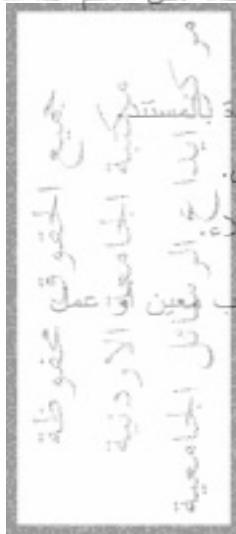 جميع الحقوق محفوظة
مكتبة الجامعة الاردنية
مركز ايداع الرسائل الجامعية
بالمستند
معين
عمل